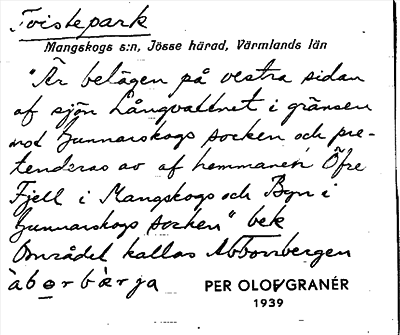 Tvistepark
Mangskogs s:n, Jösse härad, Värmlands län
"Är belägen på vestra sidan
af sjön Långvattnet i gränsen
mot Gunnarskogs socken och pre-
tenderas av af hemmanen Öfre
Fjell i Mangskogs och Byn i
Gunnarskogs socken" bek
Området kallas Abborrbergen
àborbærja
PER OLOF GRANÉR
1939